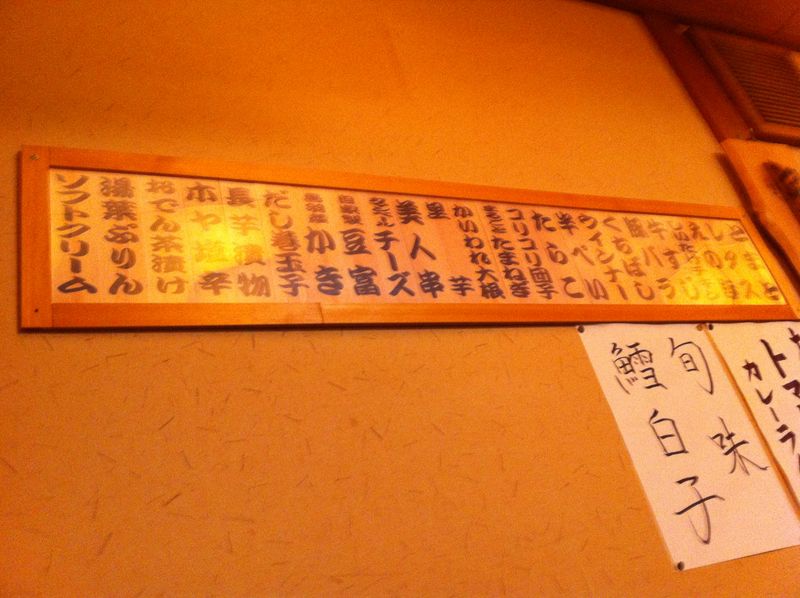 とまと
レタス
えのき
牛すじ
豚バラ
くちばし
ウインナー
半ぺい
たらこ
コリコリ団子
まるごとたまねぎ
かいわれ大根
里芋
美人串
チーズ
豆富
かき
だし巻玉子
長芋漬物
ホヤ塩辛
おでん茶漬け
湯葉ぷりん
ソフトクリーム
トマト
カレーラ
旬味
鱈白子